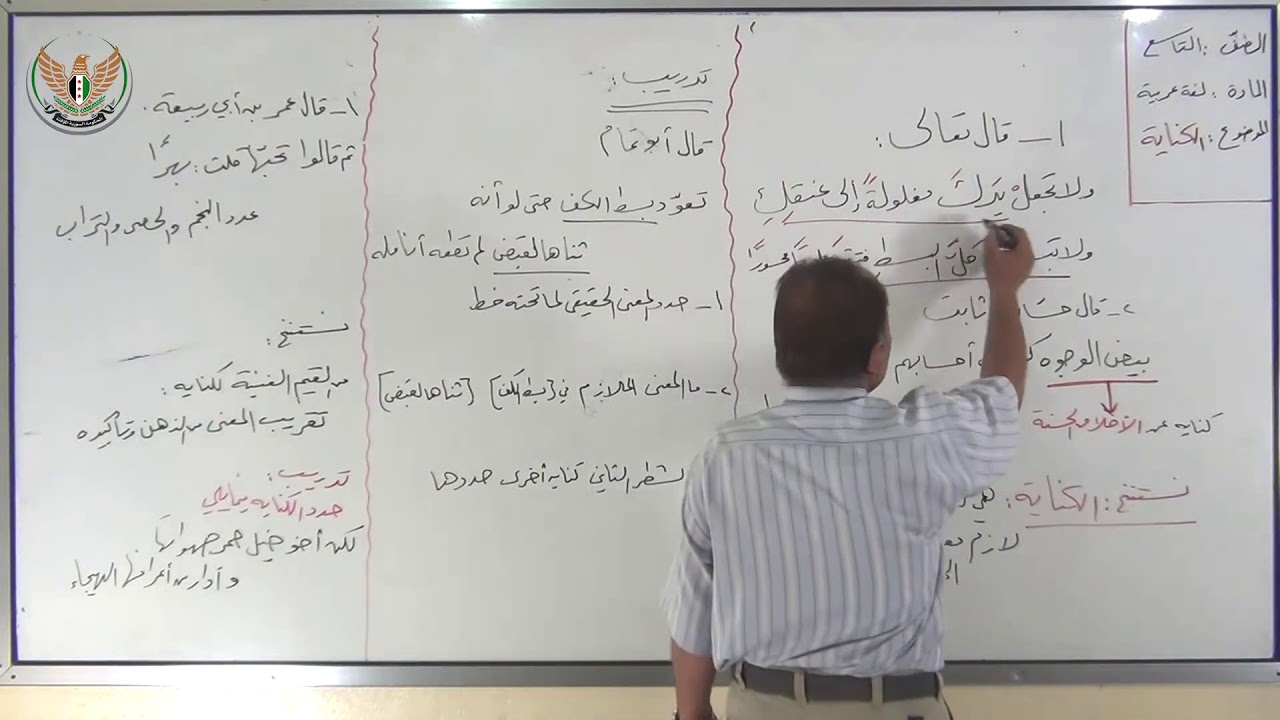 الصف : التاسع
المادة : لغة عربية
الموضوع : الكناية
١- قال تعالى :
ولا تجعلْ يَدَكَ مغلولةً إلى عنقِكِ
ولا كلَّ البسطِ محسورًا
٢- قال ثابت
بيض الوجوه أحسابهم
كناية عن الأخلاق الحسنة
نستنتج : الكناية : هي
لازم
تدريب :
قال أبو تمام
تعوّد بسط الكف حتى لو أنه
ثناها لقبض لم تطعه أنامله
١- حدد المعنى الحقيقي لما تحته خط
٢- ما المعنى الملازم في [بسط الكف] [ثناها لقبض]
الشطر الثاني كناية أخرى حددها
١- قال عمر بن أبي ربيعة .
ثم قالوا تحبّها قلت : بهرًا
عدد النجم والحصى والتراب
نستنتج :
من القيم الفنية للكناية :
تقريب المعنى من الذهن وتأكيده
تدريب :
حدد الكناية فيما يلي
لكن أخو خيل حمى صهواتها
وأدار من أعرافها الهيجاء